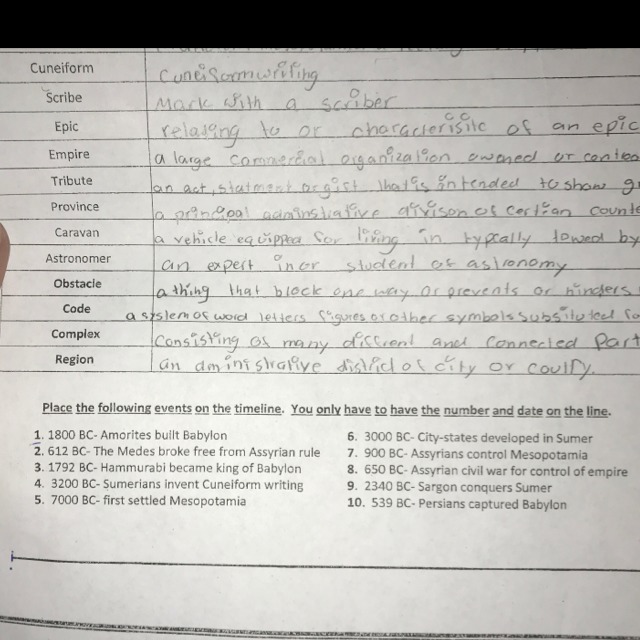 Cuneiform cuneiformwriting
Scribe Mark with a scriber
Epic relating to or characterisitc of an epic
Empire a large commercial organization owned or
Tribute an act, statment or gift that is intended to show
Province a principal adminstrative divison of certian
Caravan a vehicle equipped for living in typcally towed by
Astronomer an expert in or student of astronomy
Obstacle a thing that block one way or prevents or hinders
Code a system of word letters figures or other symbols substituted
Complex consisting of many diffrent and connected Part
Region an administrative district of city or
Place the following events on the timeline. You only have to have the number and date on the line.
1. 1800 BC- Amorites built Babylon
2. 612 BC- The Medes broke free from Assyrian rule
3. 1792 BC- Hammurabi became king of Babylon
4. 3200 BC- Sumerians invent Cuneiform writing
5. 7000 BC- first settled Mesopotamia
6. 3000 BC- City-states developed in Sumer
7. 900 BC- Assyrians control Mesopotamia
8. 650 BC- Assyrian civil war for control of empire
9. 2340 BC- Sargon conquers Sumer
10. 539 BC- Persians captured Babylon